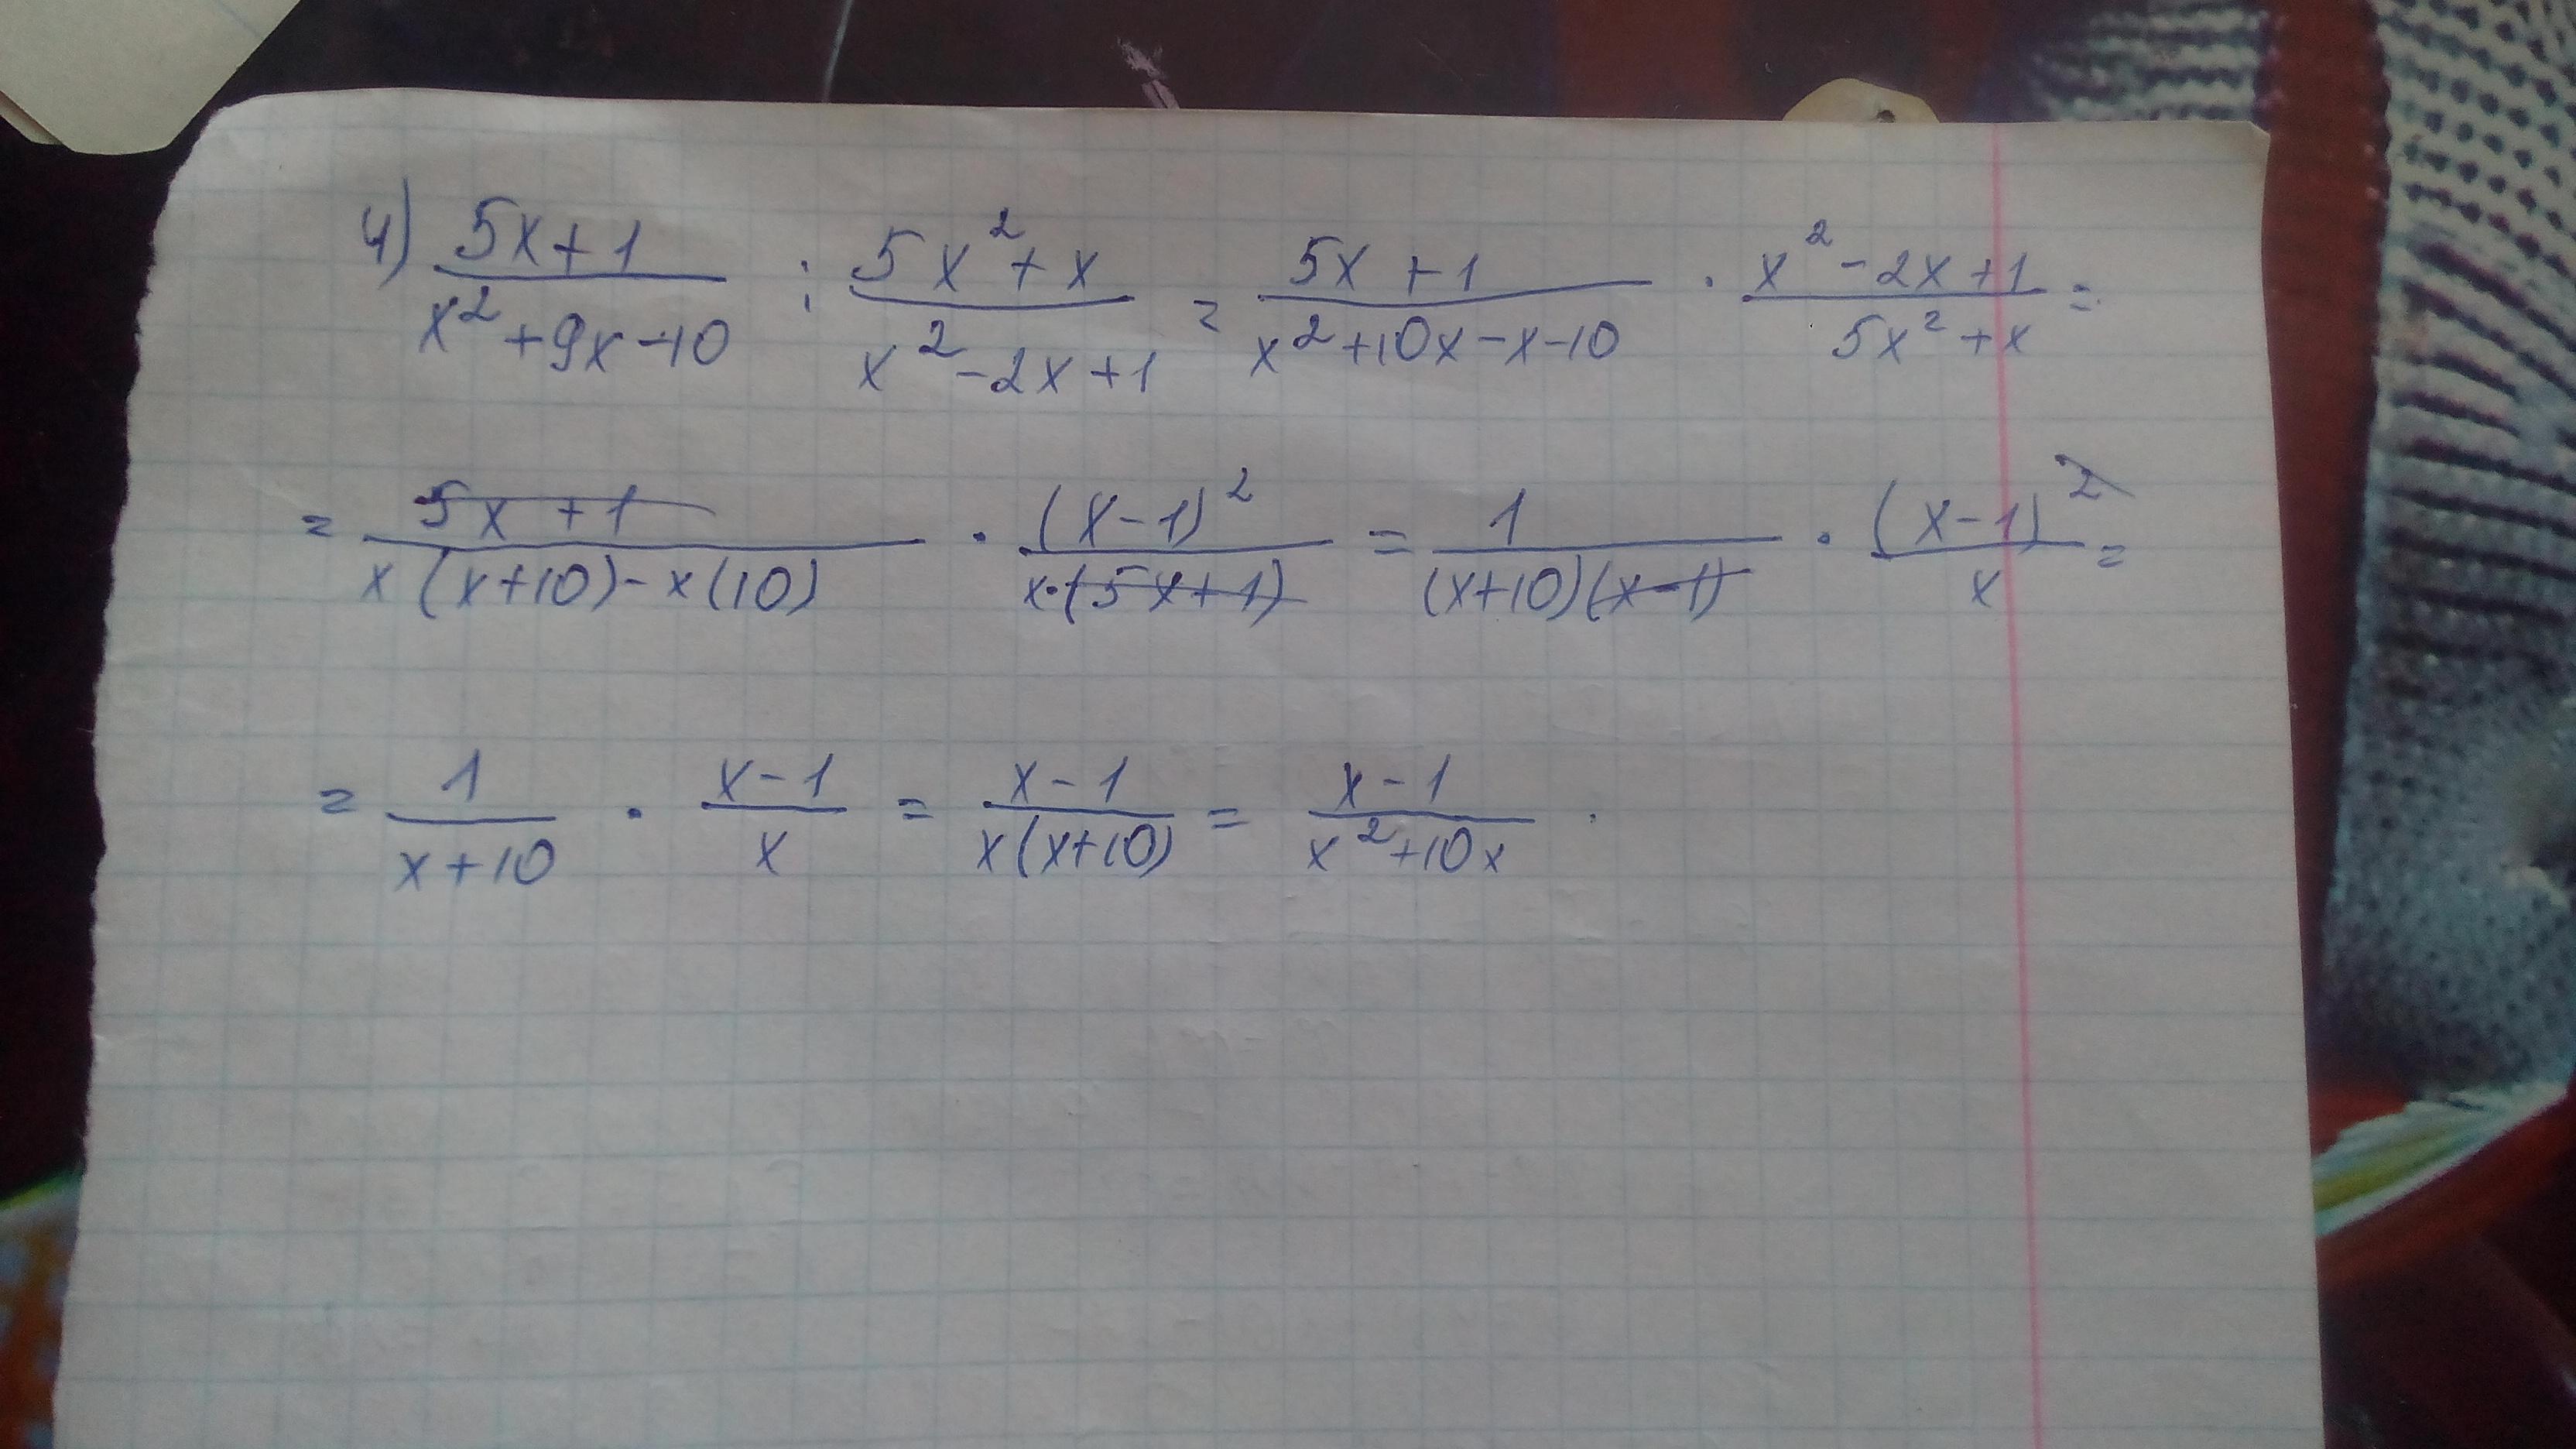 4) (5x+1)/(x²+9x-10) : (5x²+x)/(x²-2x+1) = (5x+1)/(x²+10x-x-10) · (x²-2x+1)/(5x²+x) =
= (5x+1)/(x(x+10)-x(10)) · (x-1)²/(x·(5x+1)) = 1/((x+10)(x-1)) · (x-1)²/x =
= 1/(x+10) · (x-1)/x = (x-1)/(x(x+10)) = (x-1)/(x²+10x) .